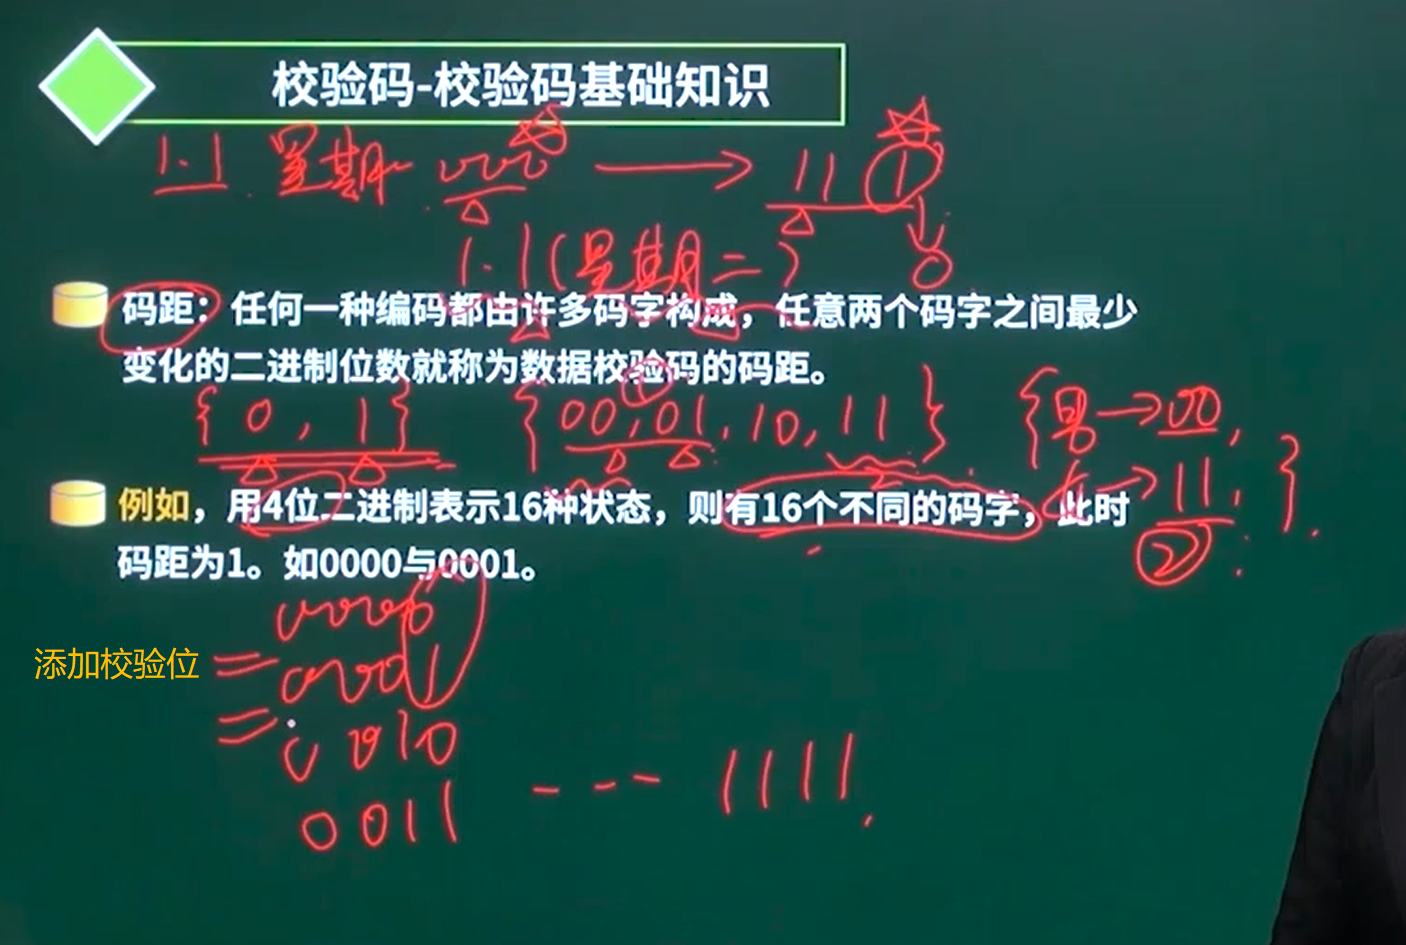 校验码-校验码基础知识
1.1 星期一 000 → 11 1
1.1(星期二) 0
码距：任何一种编码都由许多码字构成，任意两个码字之间最少
变化的二进制位数就称为数据校验码的码距。
①
{0, 1} {00,01,10,11} {男→00,
→11, }
②
例如，用4位二进制表示16种状态，则有16个不同的码字，此时
码距为1。如0000与0001。
0000
添加校验位 0001
0010
0011 --- 1111.